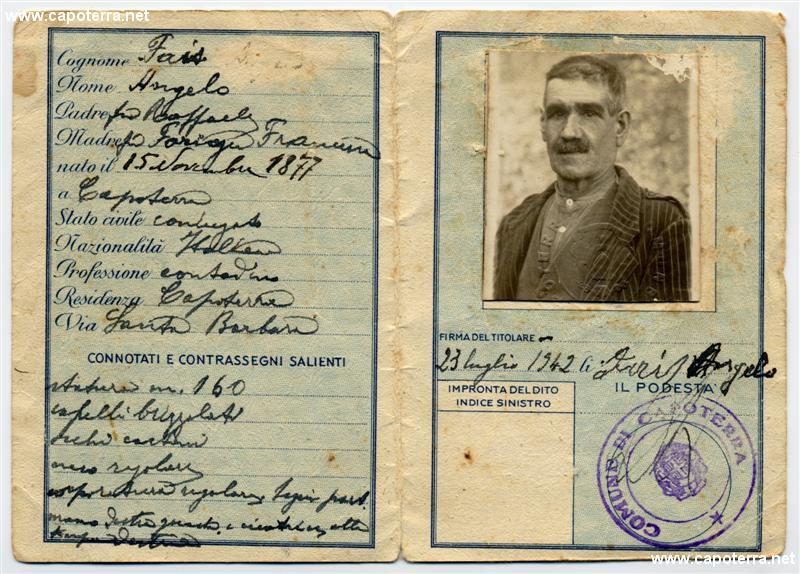 www.capoterra.net
Cognome Fais
Nome Angelo
Padre fu Raffaele
Madre fu Francesca
nato il 15 Novembre 1877
a Capoterra
Stato civile coniugato
Nazionalità Italiana
Professione contadino
Residenza Capoterra
Via Santa Barbara
CONNOTATI E CONTRASSEGNI SALIENTI
statura m. 160
capelli brizzolati
occhi castani
naso regolare
corporatura regolare segni part.
mano destra e cicatrice alla
destra
www.capoterra.net
FIRMA DEL TITOLARE
23 luglio 1942 Fais Angelo
IMPRONTA DEL DITO
INDICE SINISTRO
IL PODESTÀ
COMUNE DI CAPOTERRA
www.capoterra.net